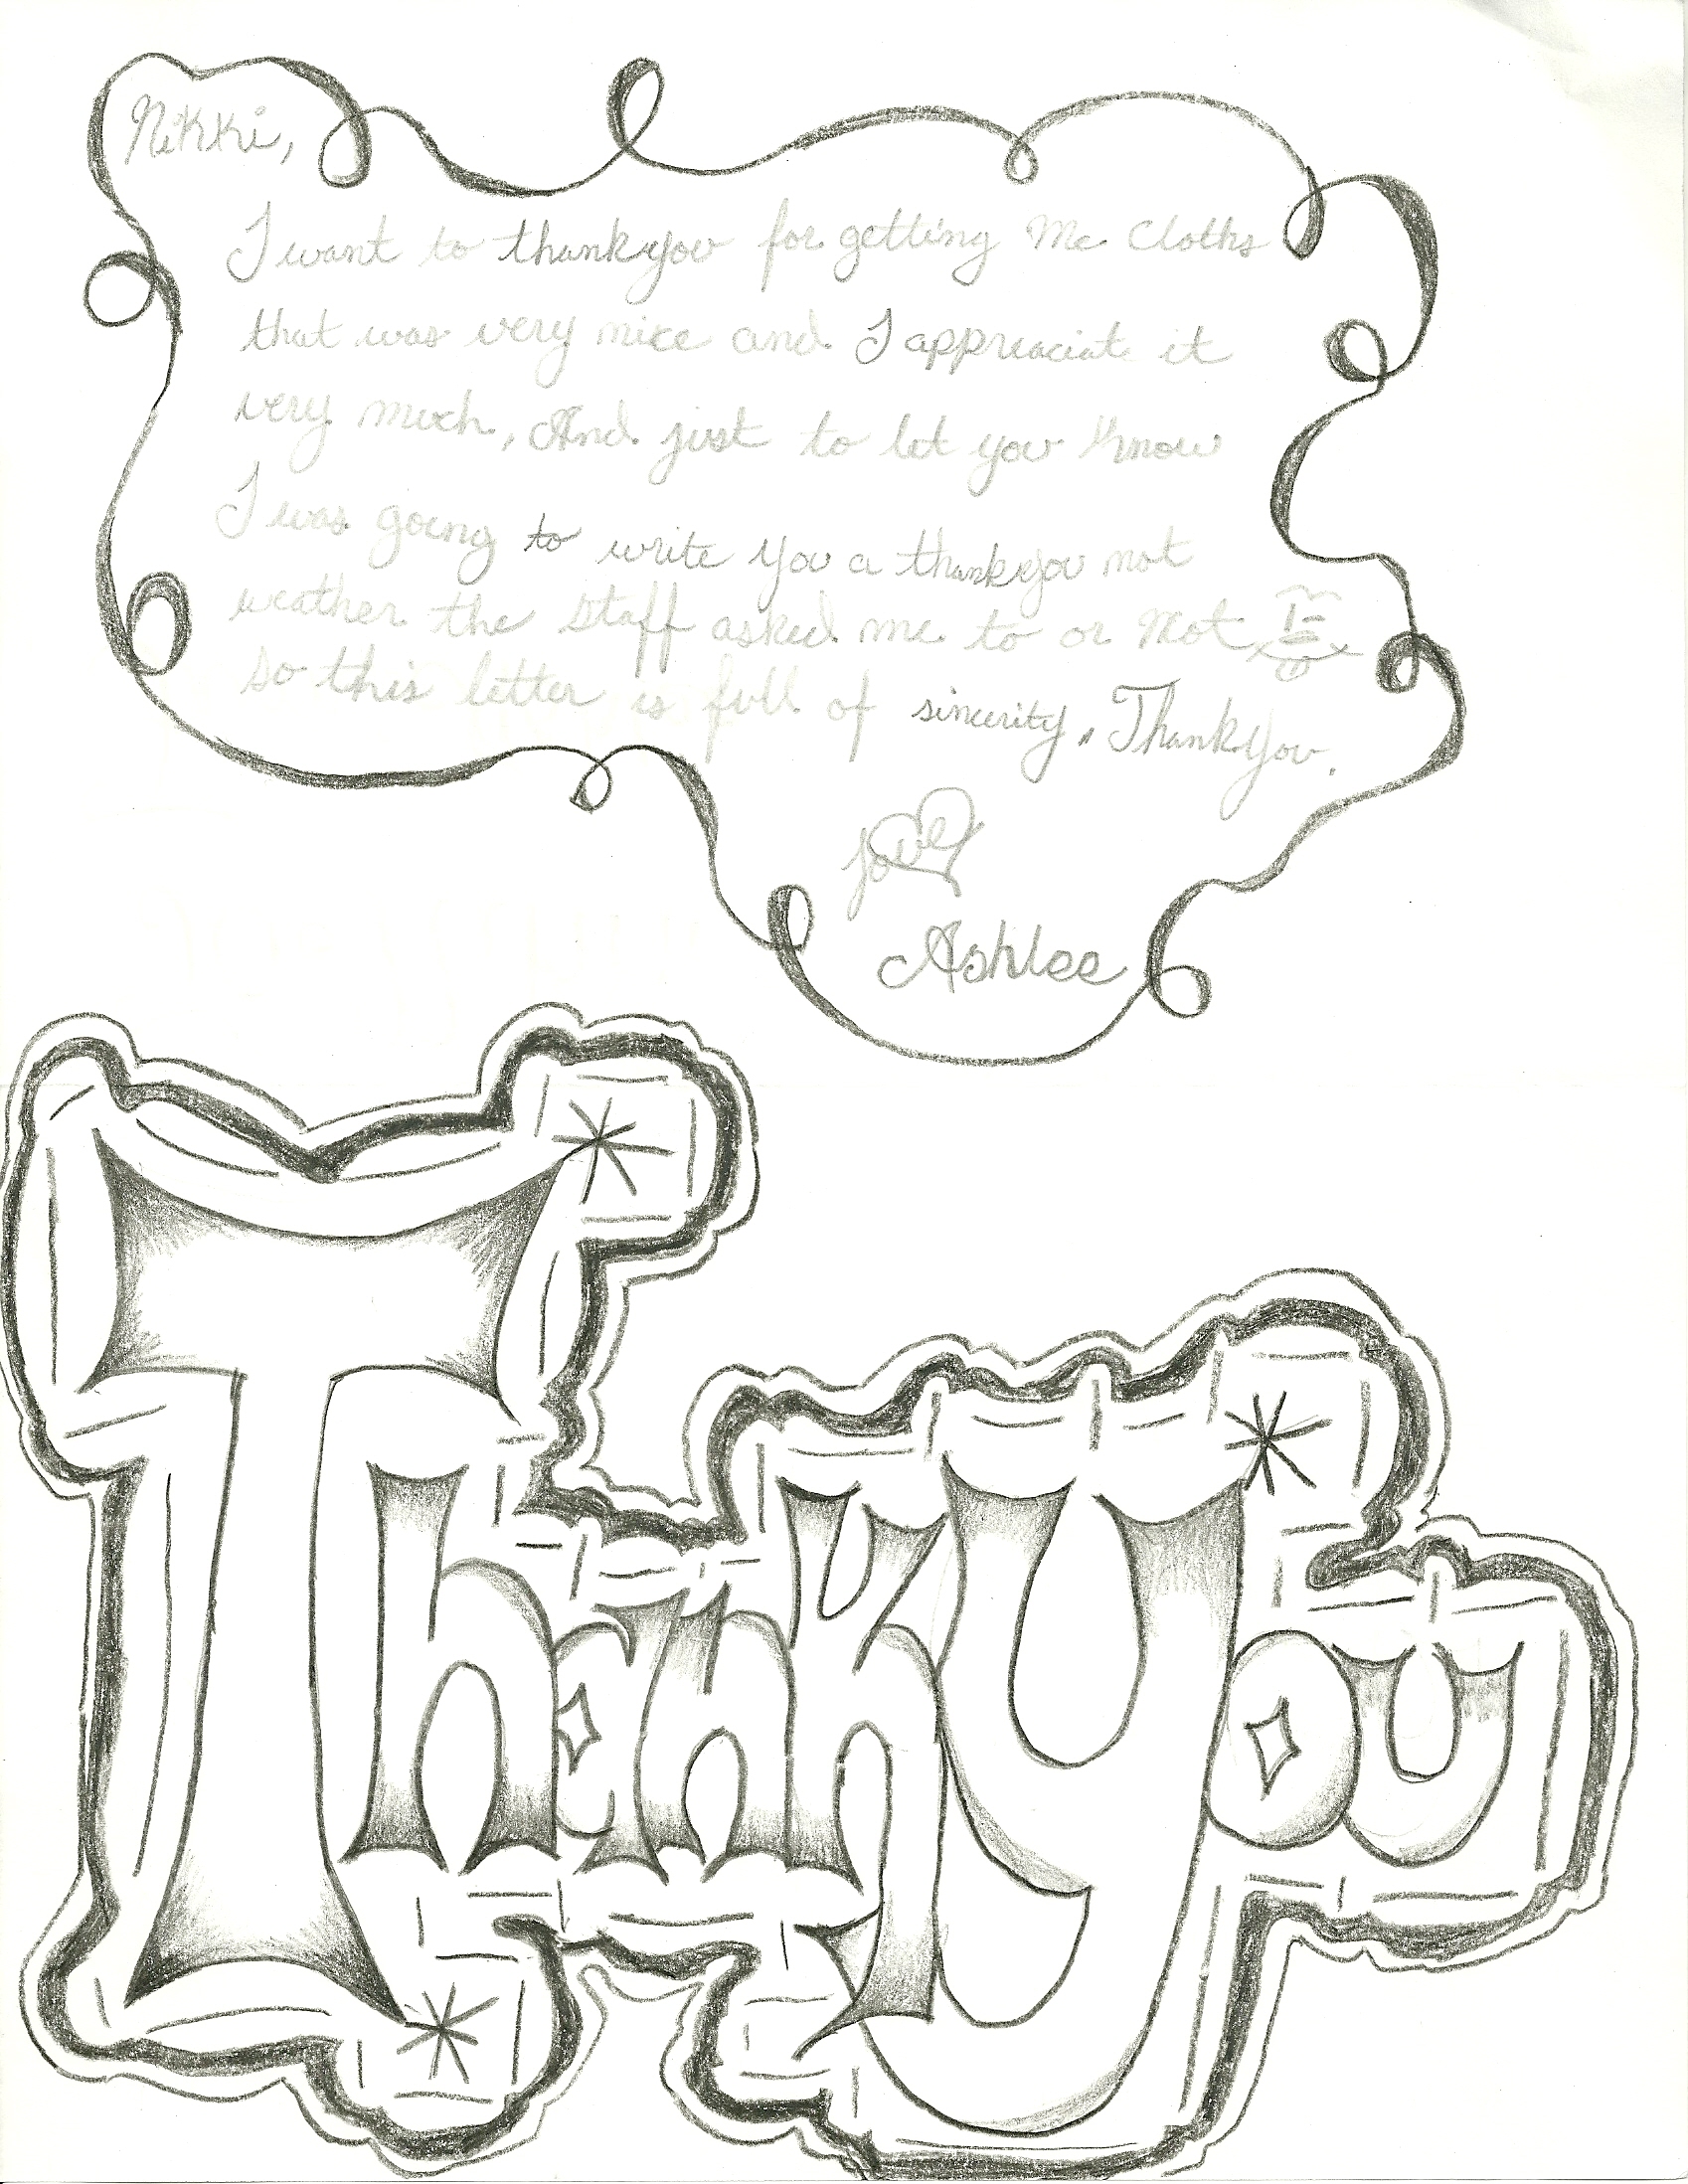 Nikki,
I want to thankyou for getting me cloths
that was very nice and I appreaciate it
very much, And just to let you know
I was going to write you a thankyou not
weather the staff asked me to or not
so this letter is full of sincerity. Thank You.
love
Ashlee
Thank You